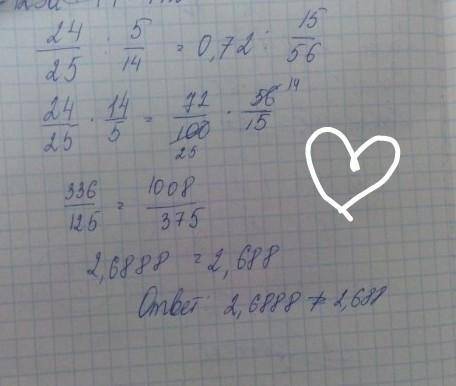 24/25 : 5/14 = 0,72 : 15/56
24/25 · 14/5 = 72/100 25 · 56/15 14
336/125 = 1008/375
2,6888 = 2,688
Ответ: 2,6888 ≠ 2,688